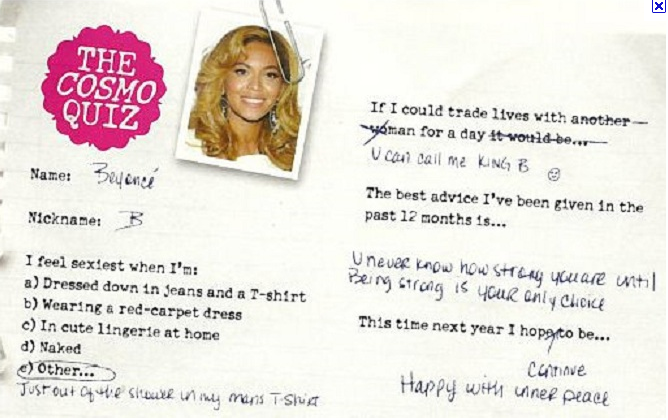 THE
COSMO
QUIZ
Name: Beyoncé
Nickname: B
I feel sexiest when I'm:
a) Dressed down in jeans and a T-shirt
b) Wearing a red-carpet dress
c) In cute lingerie at home
d) Naked
e) Other...
Just out of the shower in my mans T-Shirt
If I could trade lives with another
woman for a day it would be...
U can call me KING B ☺
The best advice I've been given in the
past 12 months is...
U never know how strong you are until
Being strong is your only choice
This time next year I hope to be...
Continue
Happy with inner peace